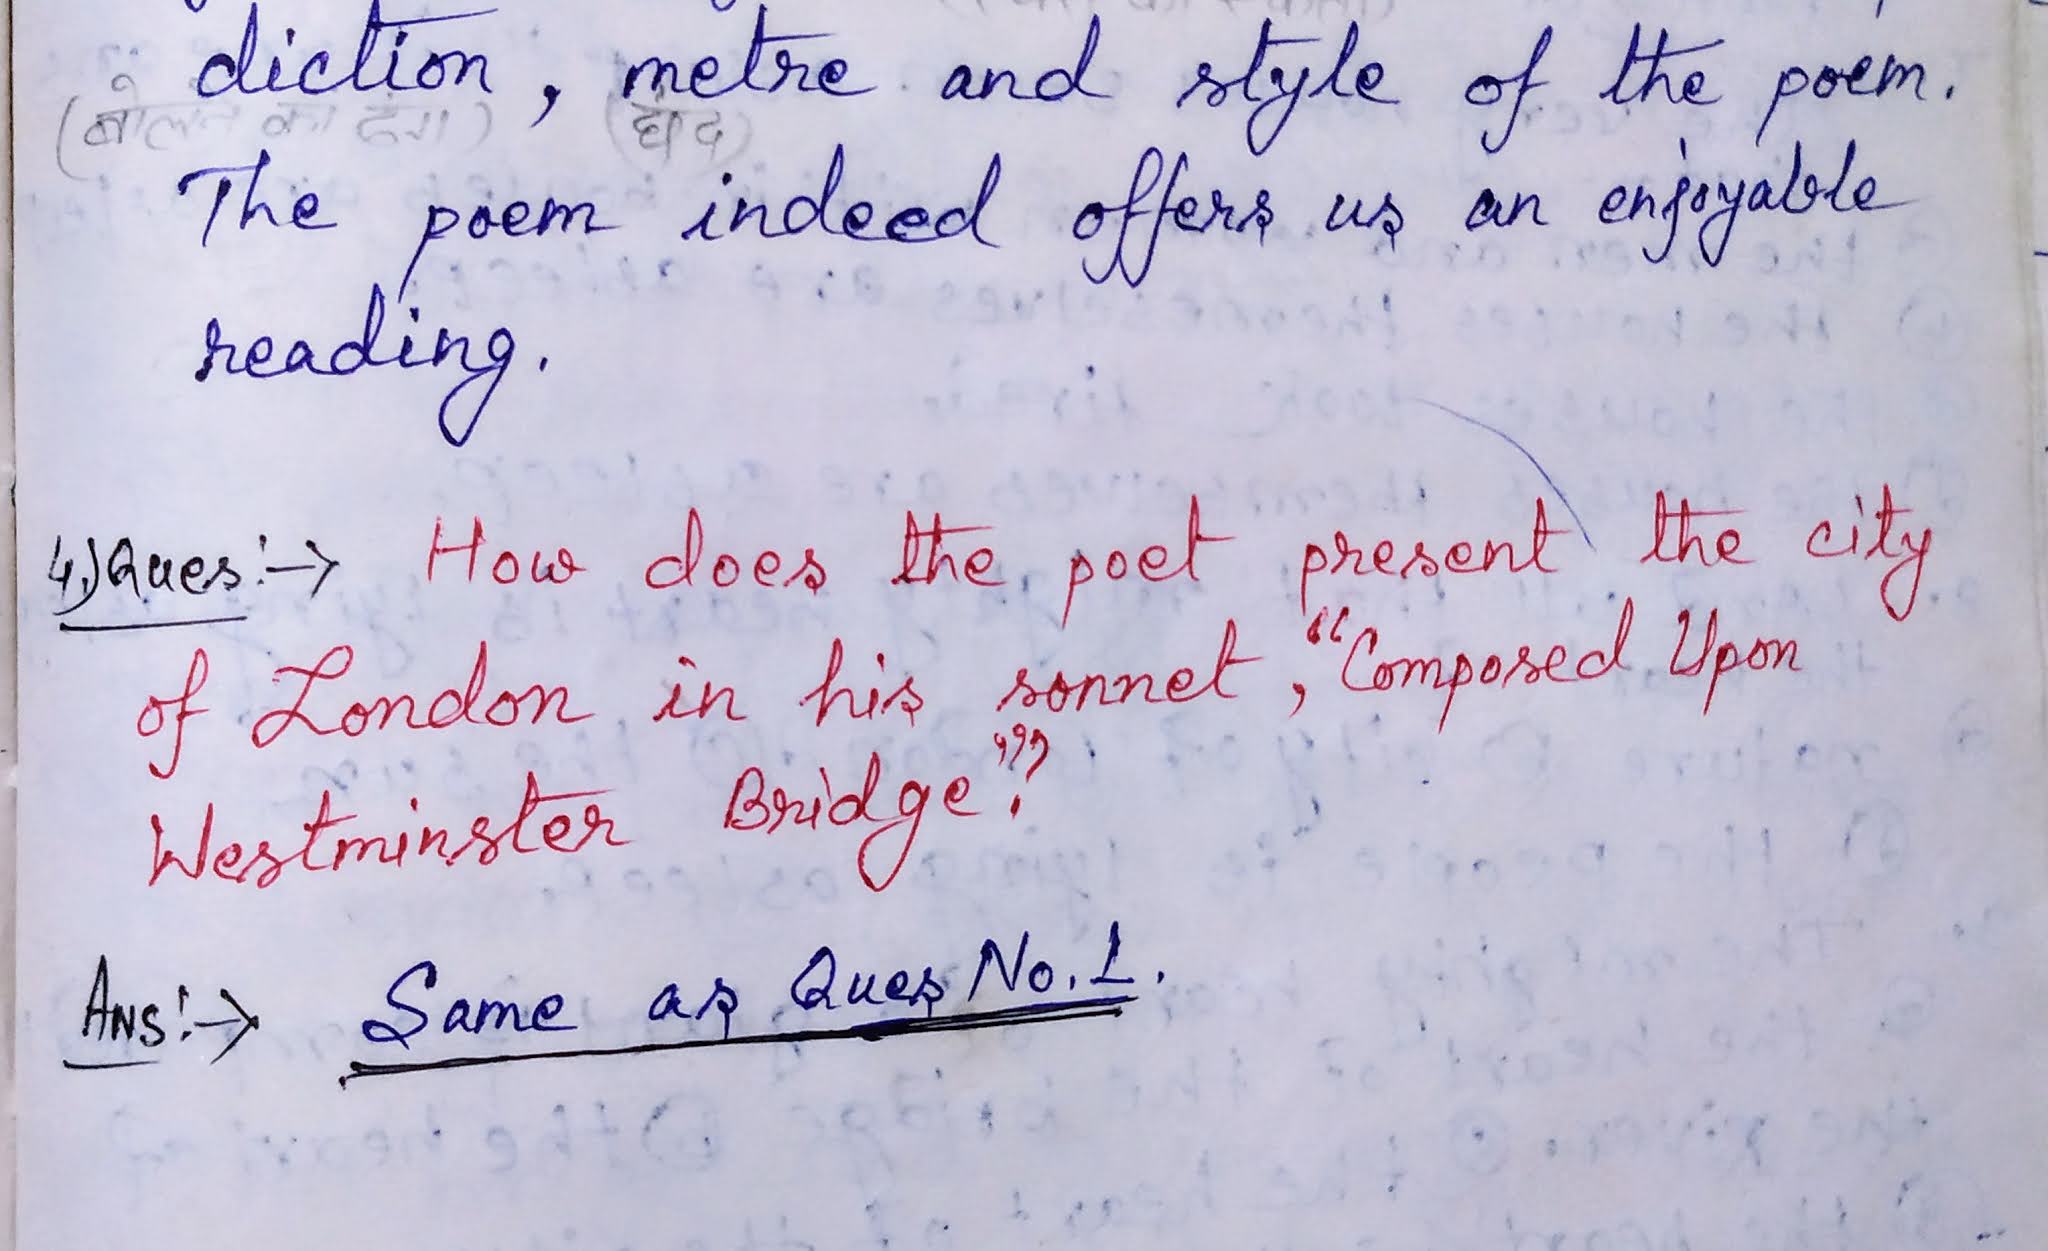 diction, metre and style of the poem.
(बोलने का ढंग) (छंद)
The poem indeed offers us an enjoyable
reading.
4.) Ques:→ How does the poet present the city
of London in his sonnet, "Composed Upon
Westminster Bridge"?
Ans:→ Same as Ques No. 1.